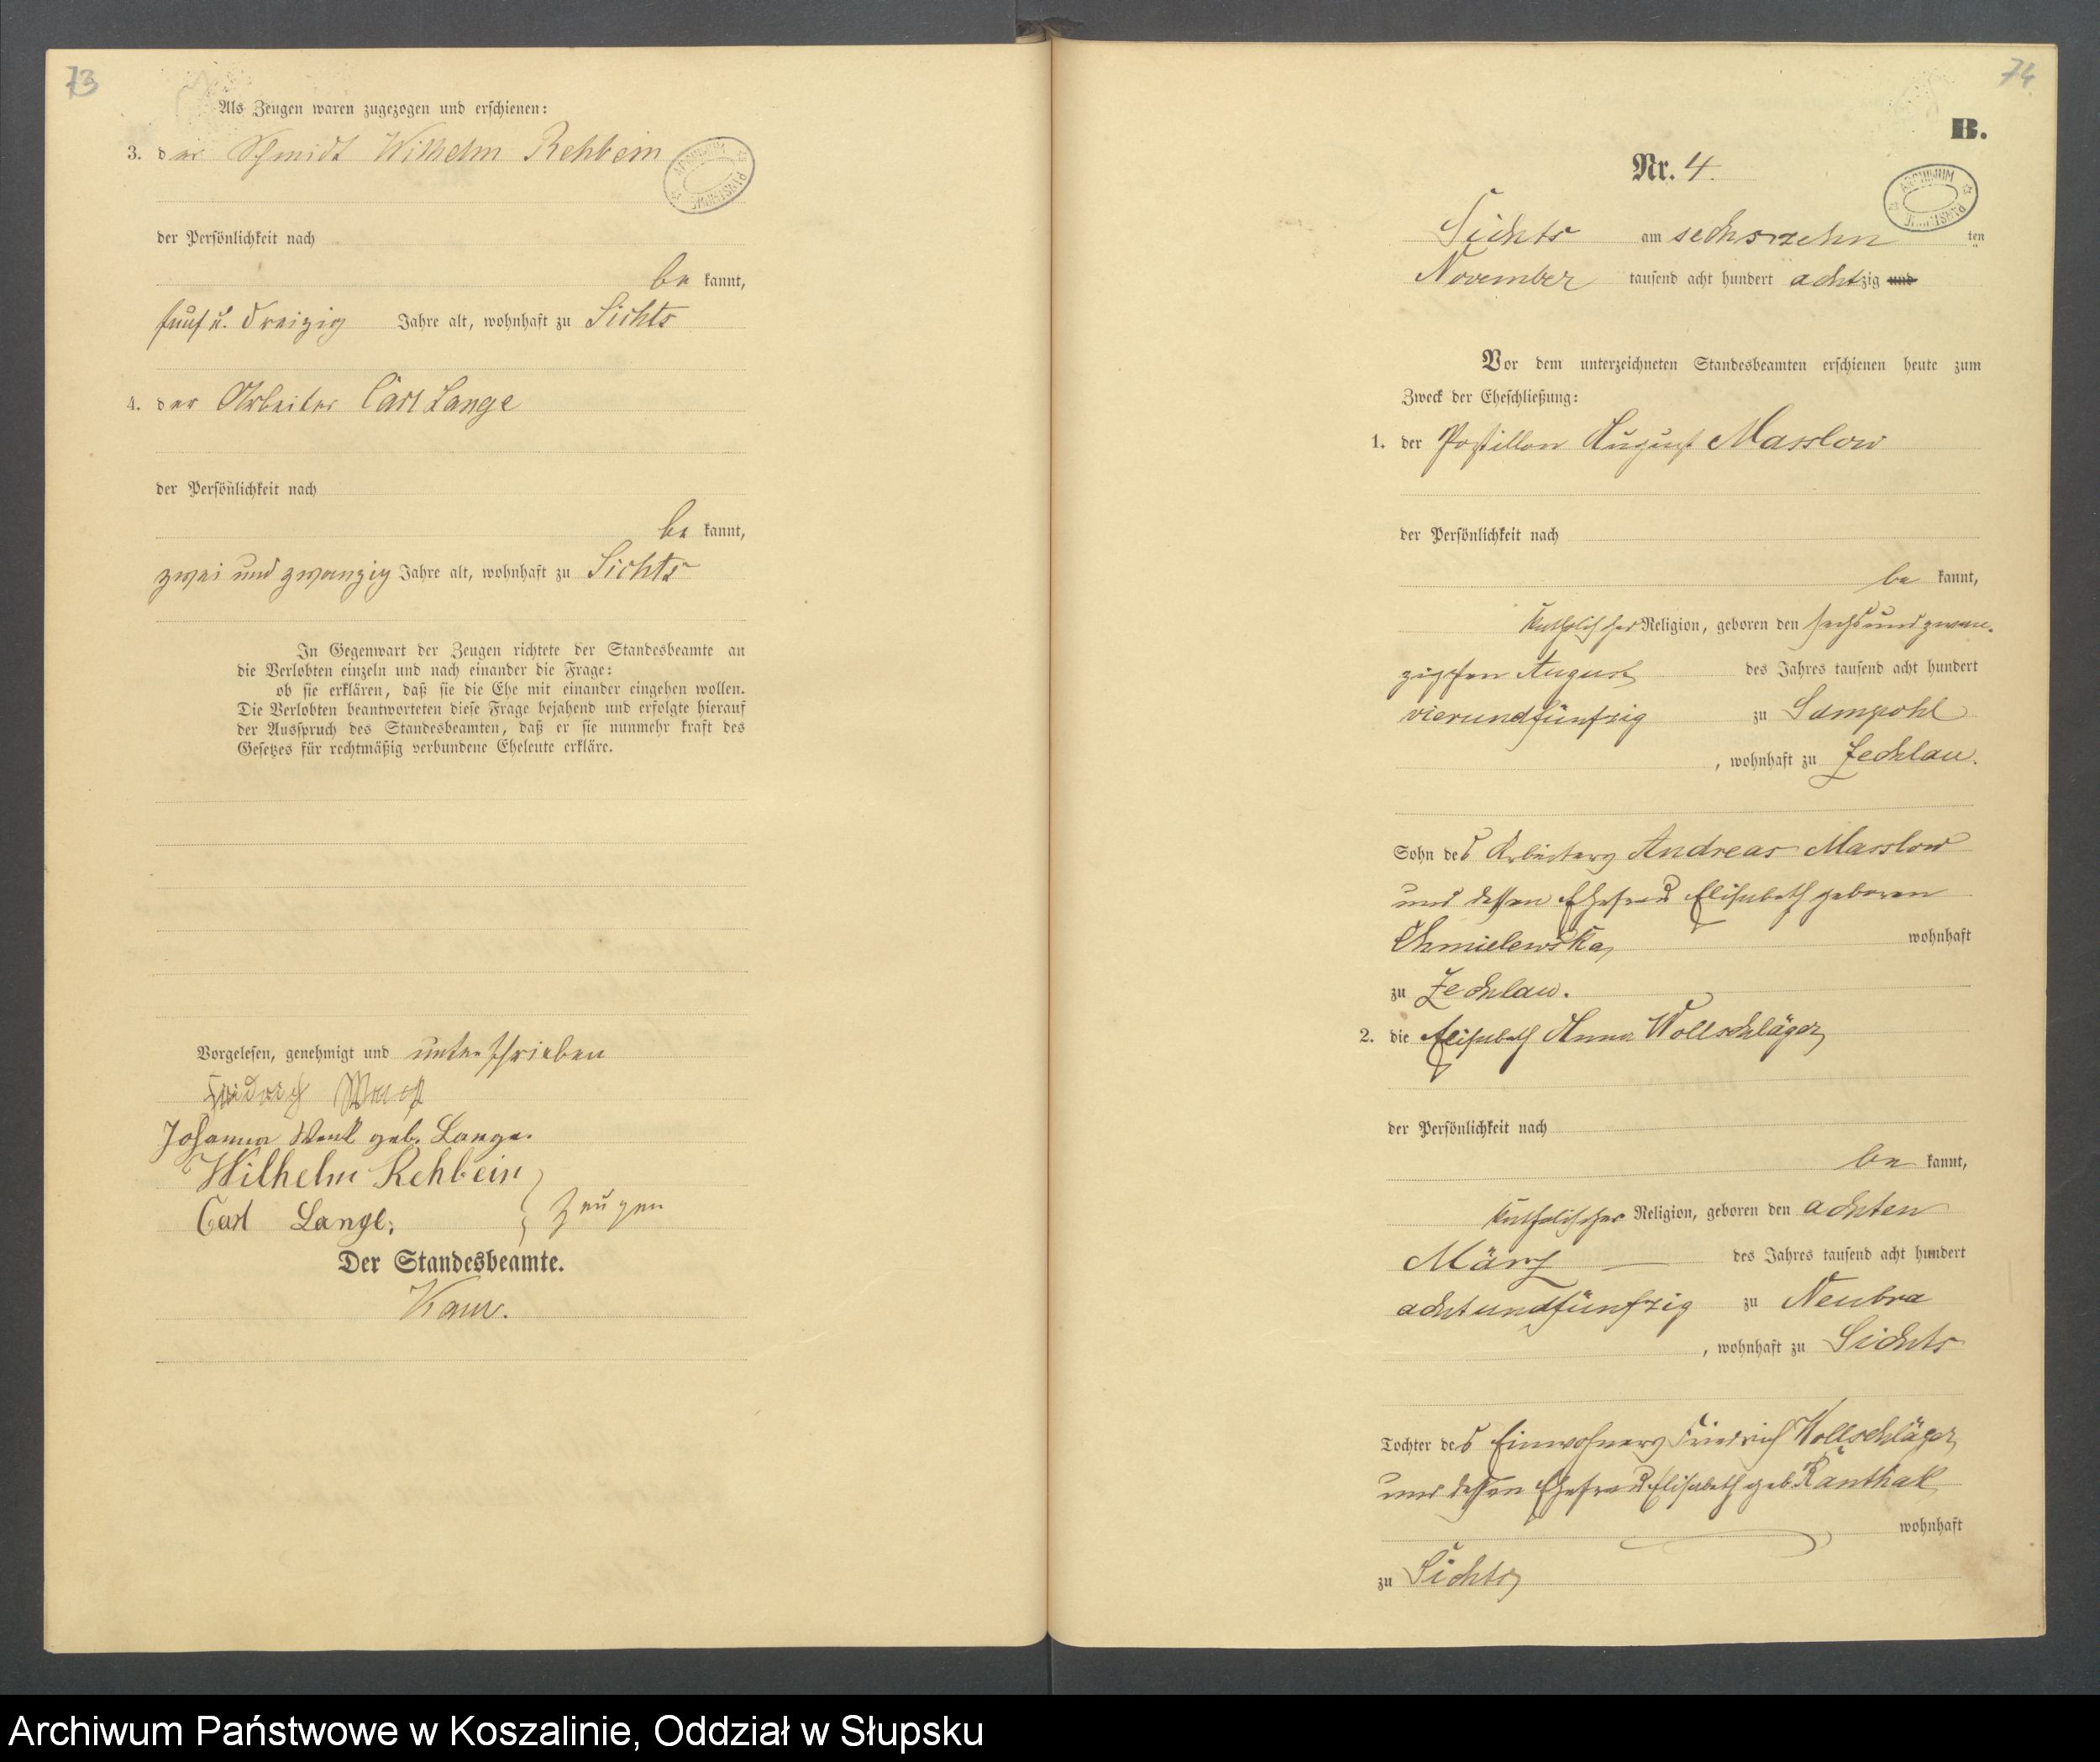 73
Als Zeugen waren zugezogen und erschienen:
3. der Schmidt Wilhelm Rehbein
der Persönlichkeit nach
be kannt,
fünf u. dreizig Jahre alt, wohnhaft zu Sichts
4. der Arbeiter Carl Lange
der Persönlichkeit nach
be kannt,
zwei und zwanzig Jahre alt, wohnhaft zu Sichts
In Gegenwart der Zeugen richtete der Standesbeamte an
die Verlobten einzeln und nach einander die Frage:
ob sie erklären, daß sie die Ehe mit einander eingehen wollen.
Die Verlobten beantworteten diese Frage bejahend und erfolgte hierauf
der Ausspruch des Standesbeamten, daß er sie nunmehr kraft des
Gesetzes für rechtmäßig verbundene Eheleute erkläre.
Vorgelesen, genehmigt und unterschrieben
Johanna geb. Lange.
Wilhelm Rehbein
Carl Lange, } Zeugen
Der Standesbeamte.
74
B.
Nr. 4.
ARCHIWUM
Sichts am sechszehn ten
November tausend acht hundert achtzig und
Vor dem unterzeichneten Standesbeamten erschienen heute zum
Zweck der Eheschließung:
1. der Postillon August Masslow
der Persönlichkeit nach
be kannt,
katholischer Religion, geboren den sechsundzwan-
zigsten August des Jahres tausend acht hundert
vierundfünfzig zu Sampohl
, wohnhaft zu Zechlau.
Sohn des Arbeiters Andreas Masslow
und dessen Ehefrau Elisabeth geboren
Chmielewska, wohnhaft
zu Zechlau.
2. die Elisabeth Anna Wollschläger
der Persönlichkeit nach
be kannt,
katholischer Religion, geboren den achten
März des Jahres tausend acht hundert
achtundfünfzig zu Neubra
, wohnhaft zu Sichts
Tochter des Einwohners Friedrich Wollschläger
und dessen Ehefrau Elisabeth geb. Kanthak
wohnhaft
zu Sichts
Archiwum Państwowe w Koszalinie, Oddział w Słupsku